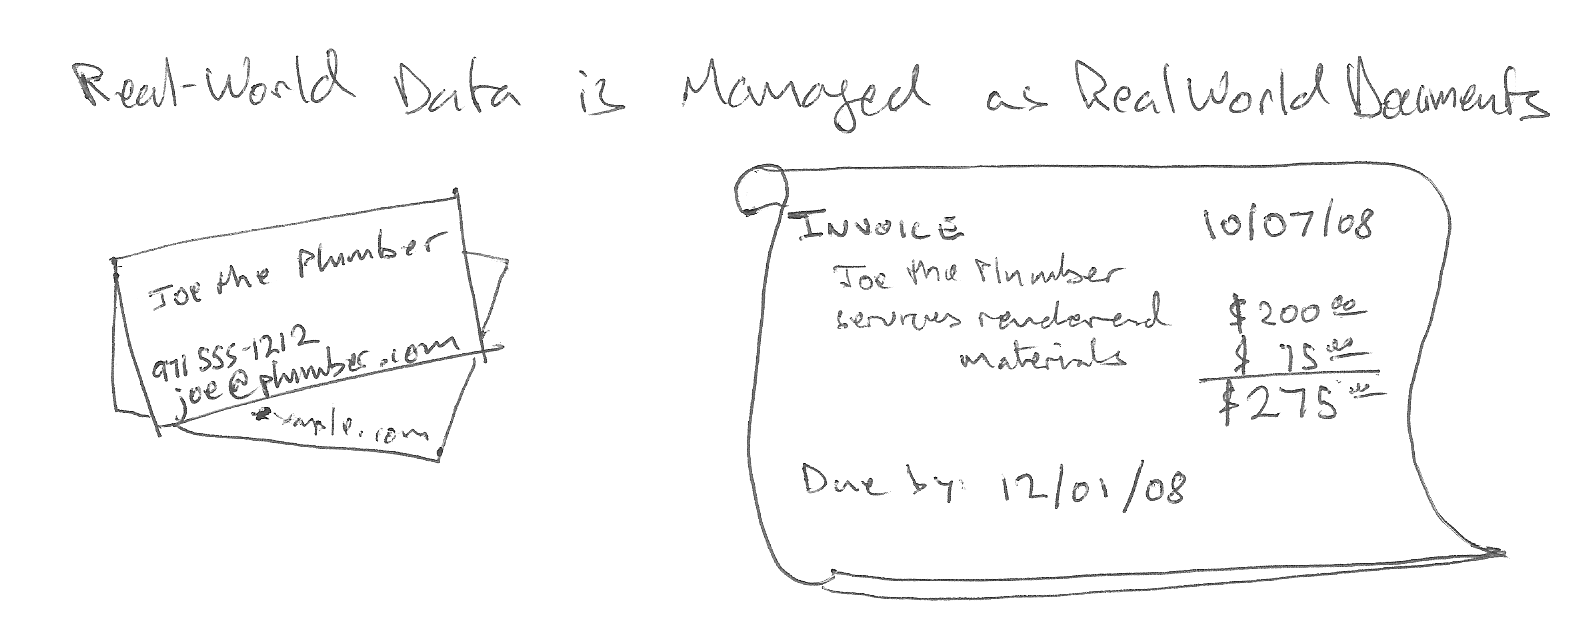 Real-World Data is Managed as Real World Documents
Joe the Plumber
971 555-1212
joe@plumber.com
example.com
INVOICE 10/07/08
Joe the Plumber
services rendered $200 00
materials $ 75 00
$275 00
Due by: 12/01/08